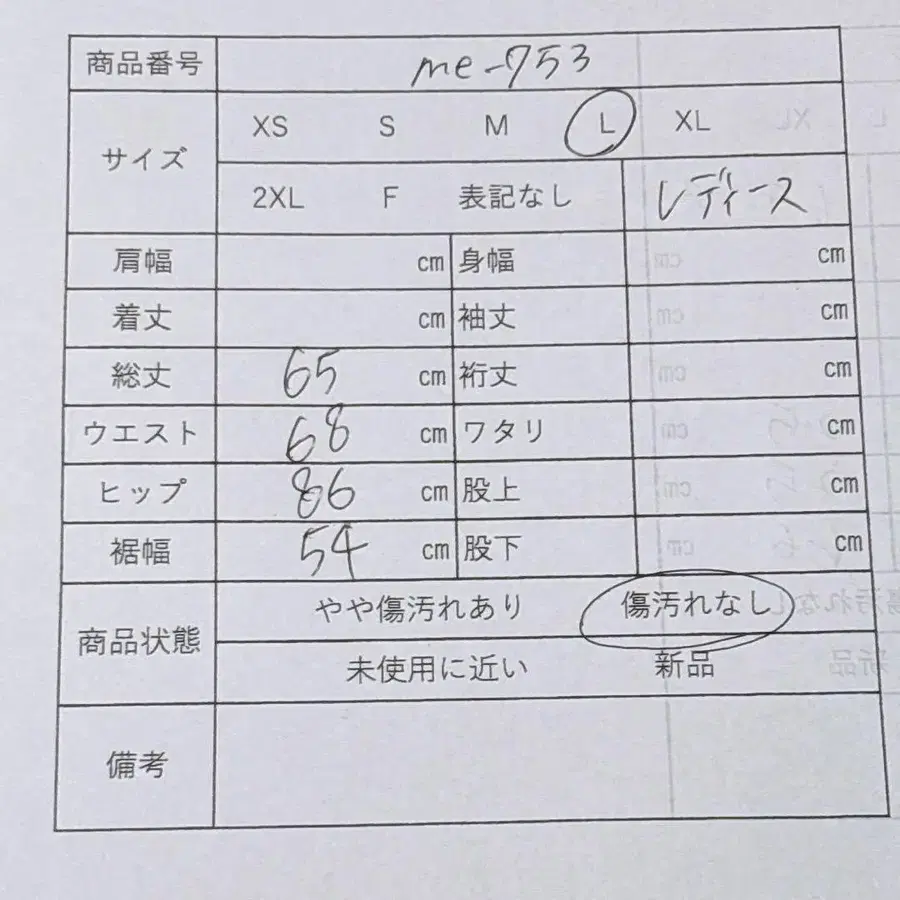 商品番号 me-753
サイズ XS S M L XL
2XL F 表記なし レディース
肩幅 cm 身幅 cm
着丈 cm 袖丈 cm
総丈 65 cm 裄丈 cm
ウエスト 68 cm ワタリ cm
ヒップ 86 cm 股上 cm
裾幅 54 cm 股下 cm
商品状態 やや傷汚れあり 傷汚れなし
未使用に近い 新品
備考